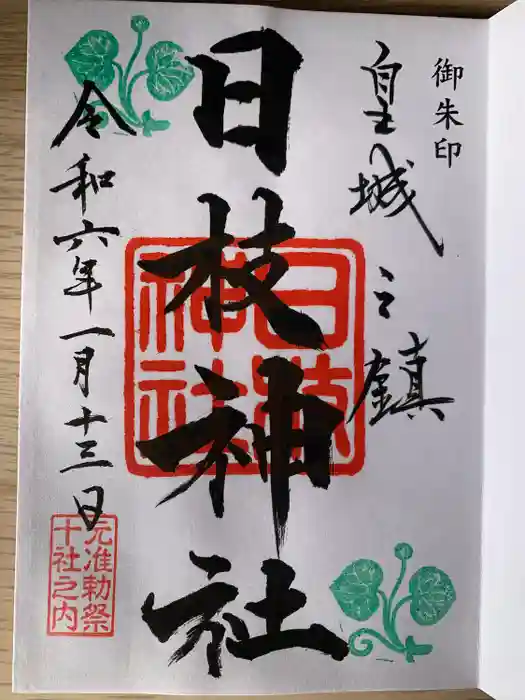 御朱印
皇城之鎮
日枝神社
日枝神社
令和六年一月十三日
元准勅祭
十社之内